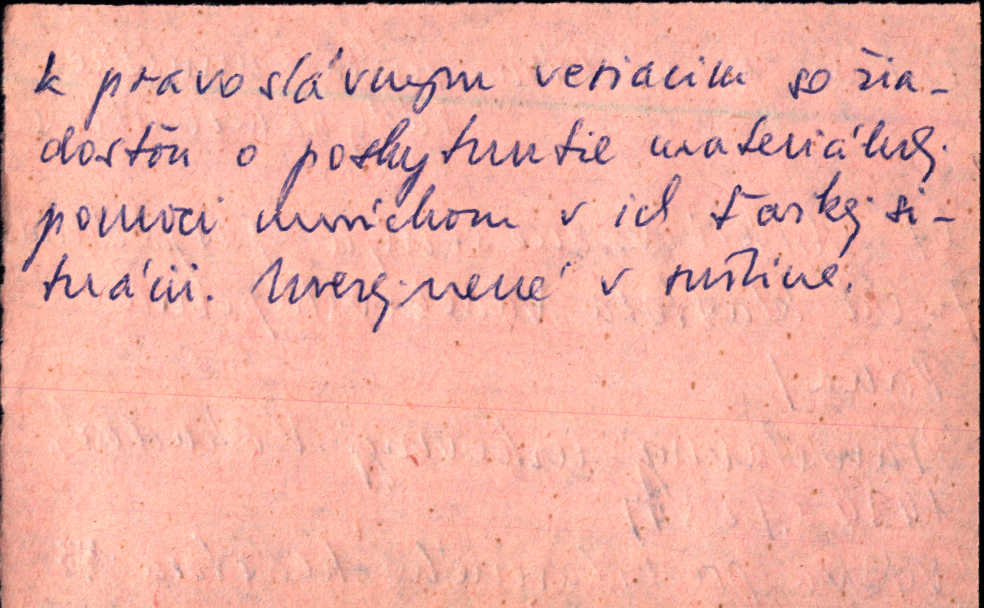 k pravoslávnym veriacim so žia-
dosťou o poskytnutie materiálnej
pomoci mníchom v ich ťažkej si-
tuácii. Uverejnené v ruštine.